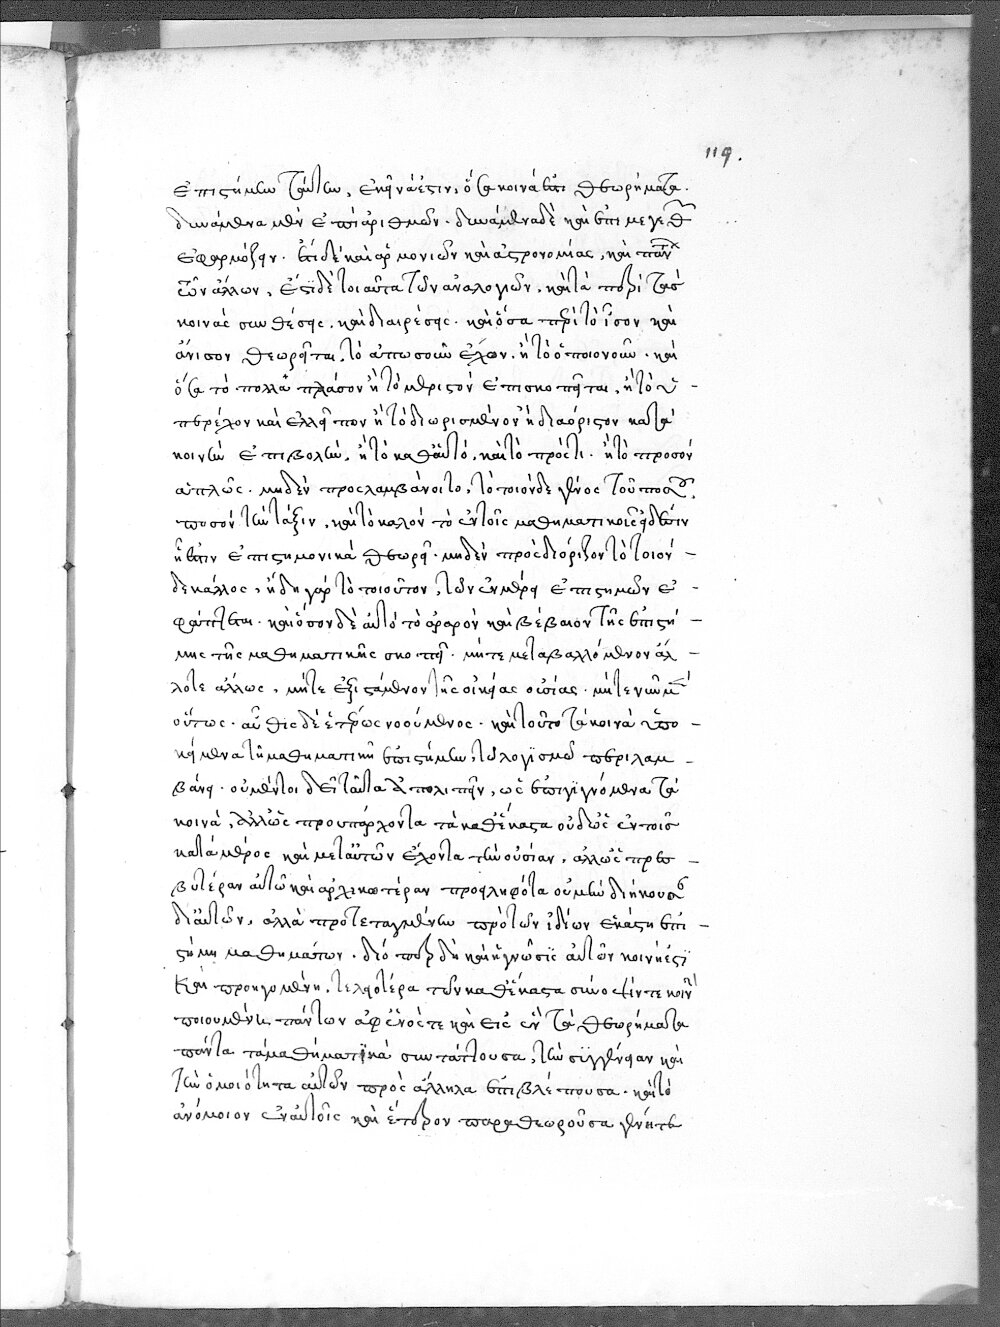 119.
ἐπιστήμην ταύτην, ἐκεῖνά ἐστιν, ὅσα κοινά ἐστι θεωρήματα.
δυνάμενα μὲν ἐπὶ ἀριθμῶν. δυνάμενα δὲ καὶ ἐπὶ μεγεθῶν
ἐφαρμόζειν. ἔτι δὲ καὶ ἁρμονιῶν καὶ ἀστρονομίας, καὶ πάντων
τῶν ἄλλων, ἔστι δὲ τοιαῦτα τῶν ἀναλογιῶν, καὶ τὰ περὶ τὰς
κοινὰς συνθέσεις, καὶ διαιρέσεις. καὶ ὅσα περὶ τὸ ἴσον καὶ
ἄνισον θεωρεῖται, τὸ ὁπωσοῦν ἔχον, ἢ τὸ ὁποιονοῦν. καὶ
ὅσα τὸ πολλαπλάσιον ἢ τὸ μεριστὸν ἐπισκοπεῖται, ἢ τὸ ὑ-
περέχον καὶ ἐλλεῖπον ἢ τὸ διωρισμένον ἢ διαόριστον κατὰ
κοινὴν ἐπιβολὴν, ἢ τὸ καθ' αὑτό, καὶ τὸ πρός τι. ἢ τὸ προσὸν
ἁπλῶς. μηδὲν προσλαμβάνοιτο, τὸ ποιόνδε γένος τοῦ ποσοῦ.
ποσὸν τὴν τάξιν, καὶ τὸ καλὸν τὸ ἐν τοῖς μαθηματικοῖς
ᾗ ἐστιν ἐπιστημονικὰ θεωρεῖ. μηδὲν προσδιορίζον τὸ τοιόν-
δε κάλλος, ἤδη γὰρ τὸ τοιοῦτον, τῶν ἐν μέρει ἐπιστημῶν ἐ-
φάπτεται. καὶ ὅσον δὲ αὐτὸ τὸ ἀραρὸν καὶ βέβαιον τῆς ἐπιστή-
μης τῆς μαθηματικῆς σκοπεῖ. μήτε μεταβαλλόμενον ἄλ-
λοτε ἄλλως, μήτε ἐξιστάμενον τῆς οἰκείας οὐσίας. μήτε νῦν μὲν
οὕτως. αὖθις δὲ ἑτέρως νοούμενος. καὶ τοῦτο τὰ κοινὰ ὑπο-
κείμενα τῇ μαθηματικῇ ἐπιστήμῃ, τῷ λογισμῷ περιλαμ-
βάνει. οὐ μέντοι δεῖ ταῦτα ἀπολιπεῖν, ὡς ἐπιγιγνόμενα τὰ
κοινὰ, ἀλλ' ὡς προυπάρχοντα τὰ καθ' ἕκαστα οὐδ' ὡς ἐν τοῖς
κατὰ μέρος καὶ μετ' αὐτῶν ἔχοντα τὴν οὐσίαν, ἀλλ' ὡς πρεσ-
βυτέραν αὐτῶν καὶ ἀρχικωτέραν προειληφότα οὐ μὴν διήκουσαν
δι' αὐτῶν, ἀλλὰ προτεταγμένην πρὸ τῶν ἰδίων ἑκάστῃ ἐπι-
στήμῃ μαθημάτων. διόπερ δὴ καὶ ἡ γνῶσις αὐτῶν κοινή ἐστι
καὶ προηγουμένη, τελειοτέρα τῶν καθ' ἕκαστα σύνοψίν τε κοινὴν
ποιουμένη πάντων ἀφ' ἑνός τε καὶ εἰς ἓν τὰ θεωρήματα
πάντα τὰ μαθηματικὰ συντάττουσα, τὴν συγγένειαν καὶ
τὴν ὁμοιότητα αὐτῶν πρὸς ἄλληλα ἐπιβλέπουσα. καὶ τὸ
ἀνόμοιον ἐν αὐτοῖς καὶ ἕτερον παραθεωροῦσα γένη τε